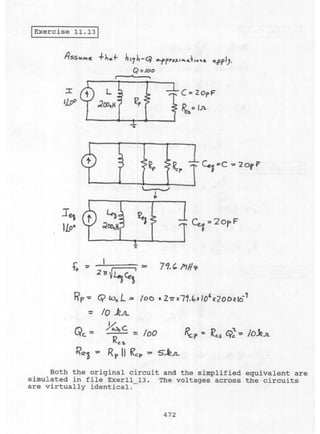 Exercise 11.13
Assume that high-Q approximations apply.
Q=100
I
1∠0°
L
200nH
Rp
C = 20pF
Rcs = 1Ω
Rp
Rcp
Ceq = C = 20pF
Ieq
1∠0°
Leq
200nH
Req
Ceq = 20pF
fo = 1 / 2π√LeqCeq = 79.6 MHz
Rp = Q ωo L = 100 × 2π×79.6×10⁶×200×10⁻⁹
= 10 kΩ
Qc = 1/ωoC / Rcs = 100 Rcp = Rcs Qc² = 10kΩ
Req = Rp || Rcp = 5kΩ
Both the original circuit and the simplified equivalent are
simulated in file Exer11_13. The voltages across the circuits
are virtually identical.
472